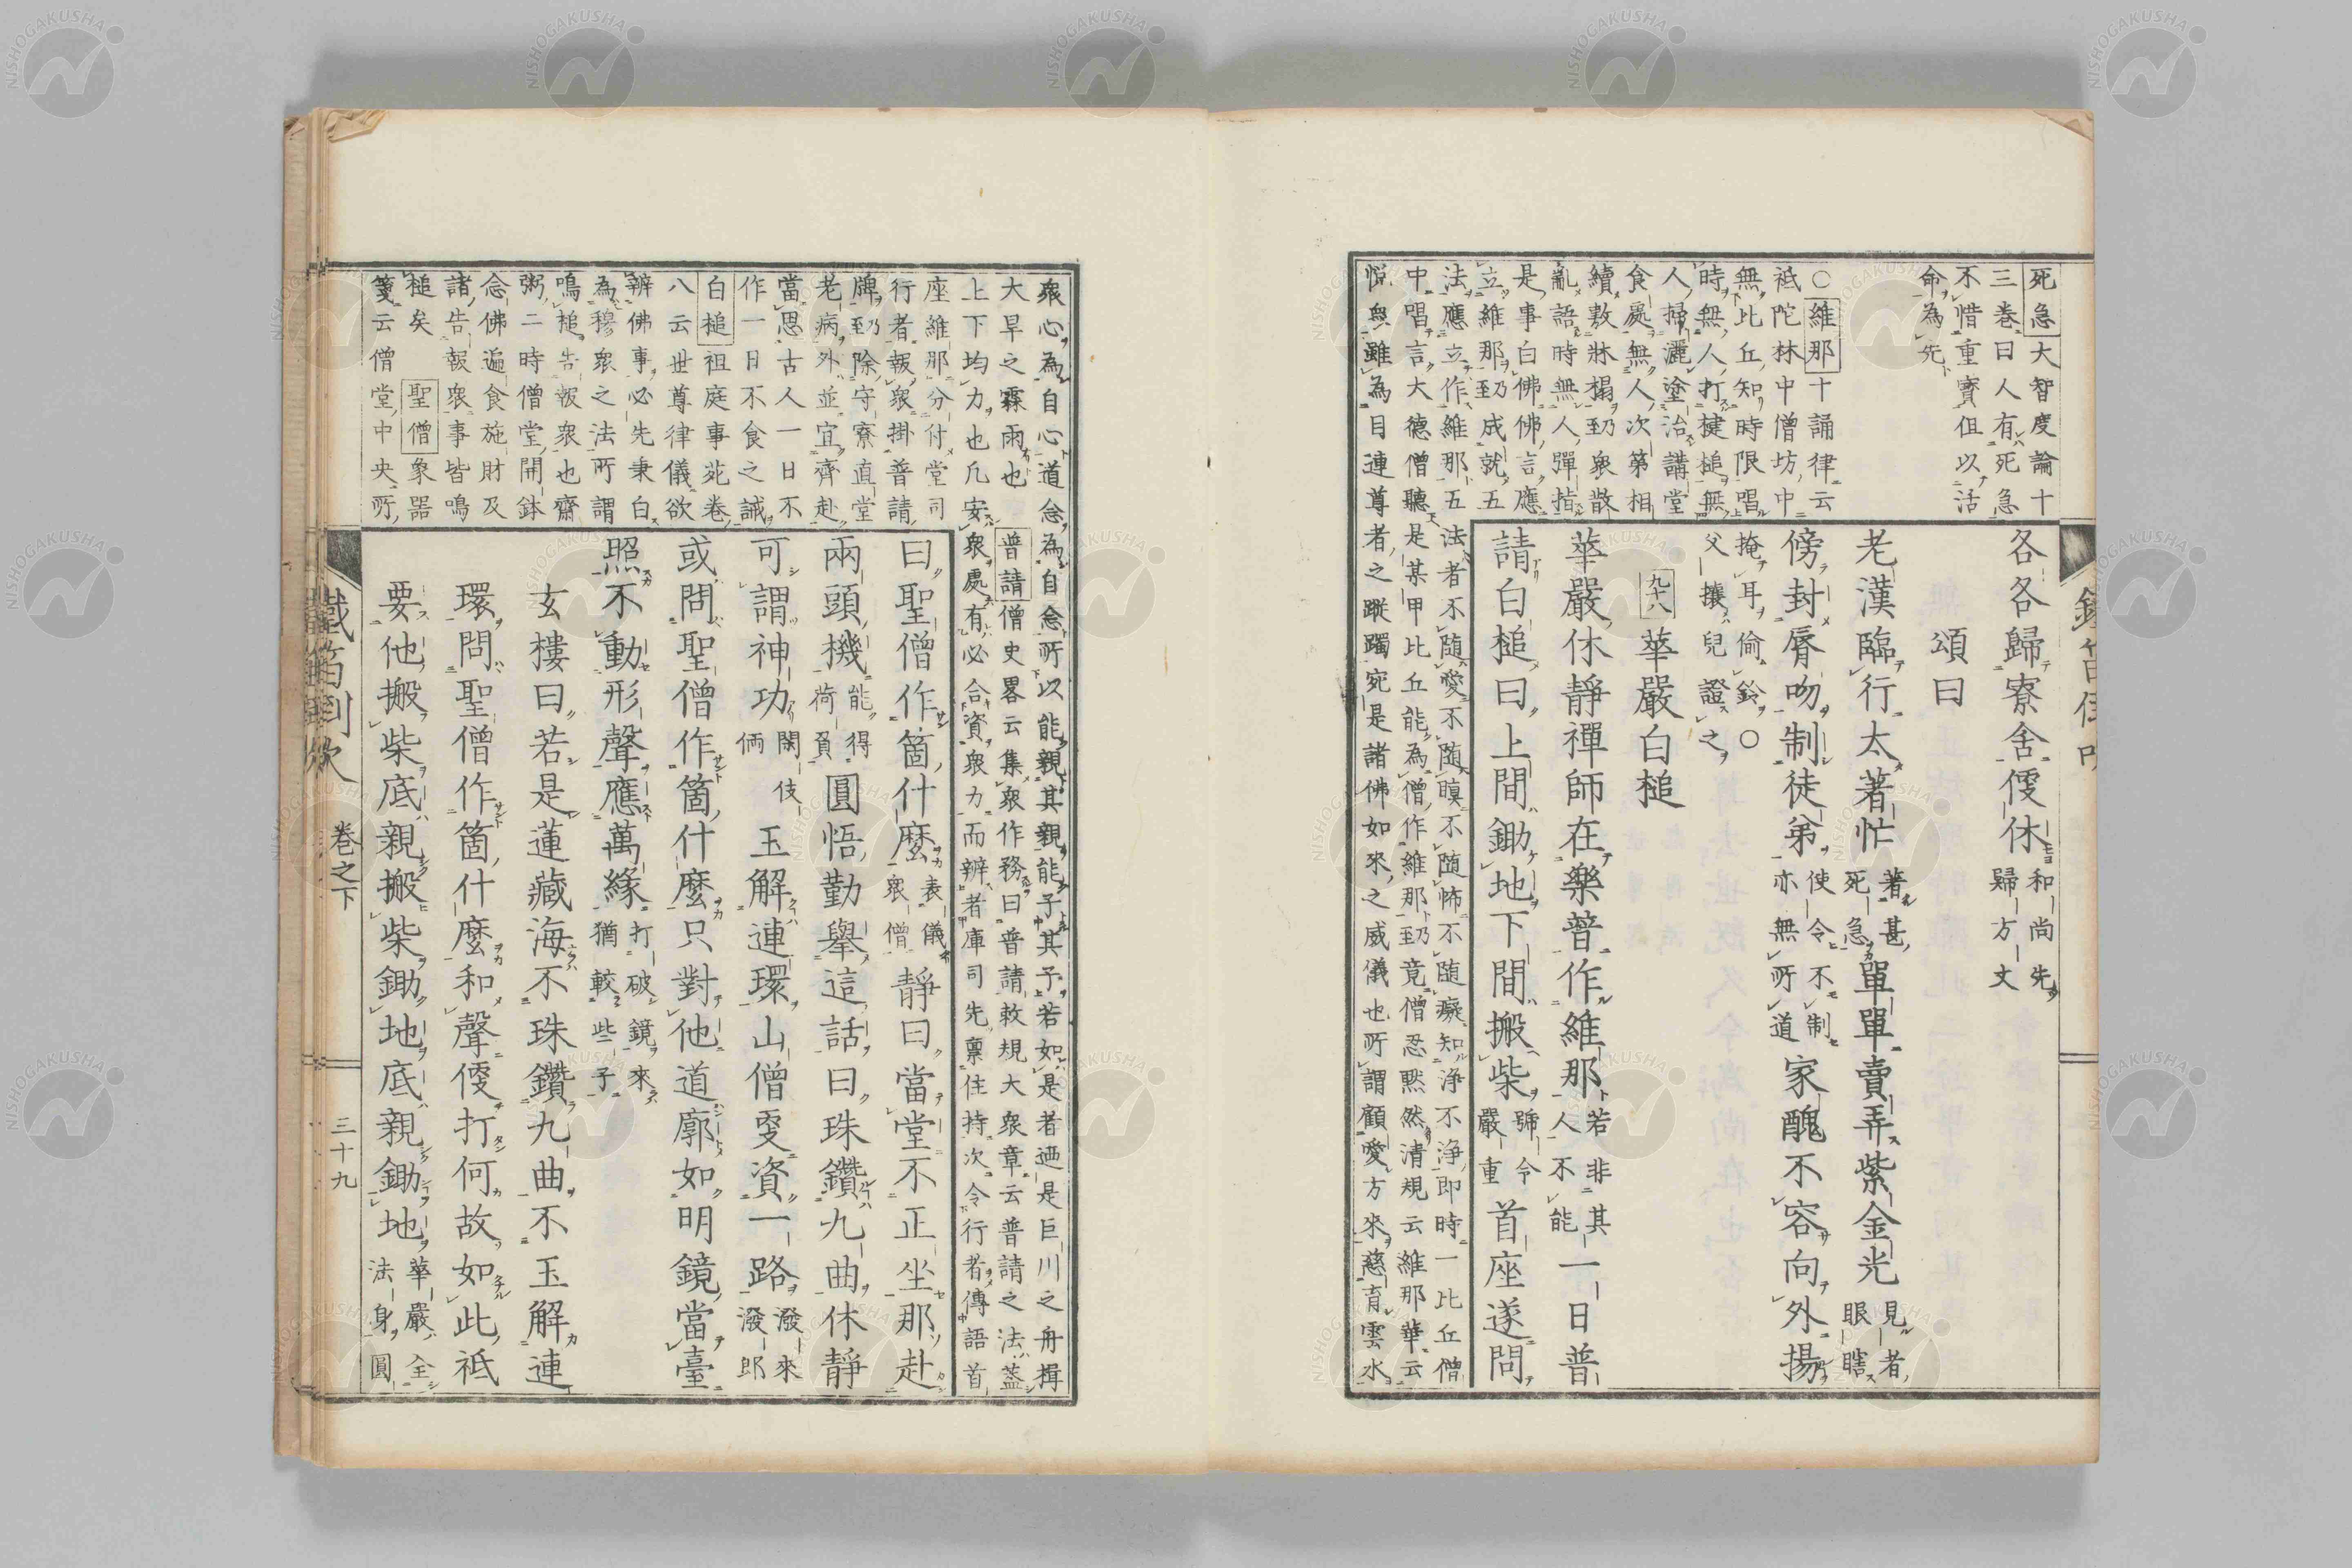 死急大智度論十
三卷曰人有死急
不惜重寳但以活
命為先
○維那十誦律云
祇陀林中僧坊中
無比丘知時限唱
時無人打楗槌無
人掃灑塗治講堂
食處無人次第相
續敷牀榻至乃衆散
亂語時無人彈指
是事白佛佛言應
立維那至乃成就五
法應立作維那五法者不隨愛不隨瞋不隨怖不隨癡知淨不淨即時一比丘僧
中唱言大德僧聽是某甲比丘能為僧作維那至乃竟僧忍默然清規云維那華云
悅與雖為目連尊者之蹤躅宛是諸佛如來之威儀也所謂顧愛方來慈育雲水
各各歸寮舍便休和尚先歸方丈
頌曰
老漢臨行太著忙著甚死急單單賣弄紫金光見者眼瞎
傍封脣吻制徒弟使令不制亦無所道家醜不容向外揚
掩耳偷鈴○父攘兒證之
九十八 華嚴白槌
華嚴休靜禪師在樂普作維那若非其人不能一日普
請白槌曰上間鋤地下間搬柴號令嚴重首座遂問
衆心為自心道念為自念所以能親其親能子其子若如是者迺是巨川之舟揖
大旱之霖雨也 普請僧史畧云集衆作務曰普請敕規大衆章云普請之法葢
上下均力也凡安衆處有必合資衆力而辨者庫司先稟住持次令行者傳語首
座維那分付堂司
行者報衆掛普請
牌至乃除守寮直堂
老病外並宜齊赴
當思古人一日不
作一日不食之誡
白槌祖庭事苑卷
八云世尊律儀欲
辨佛事必先秉白
為穆衆之法所謂
鳴槌告報衆也齋
粥二時僧堂開鉢
念佛遍食施財及
諸告報衆事皆鳴
槌矣 聖僧象器
箋云僧堂中央所
曰聖僧作箇什麼表儀衆僧靜曰當堂不正坐那赴
兩頭機能得荷負圓悟勤擧這話曰珠鑽九曲休靜
可謂神功閑伎倆玉解連環山僧更資一路潑來潑郎
或問聖僧作箇什麼只對他道廓如明鏡當臺
照不動形聲應萬緣打破鏡來猶較些子
玄樓曰若是蓮藏海不珠鑽九曲不玉解連
環問聖僧作箇什麼和聲便打何故如此祇
要他搬柴底親搬柴鋤地底親鋤地華嚴全法身圓
鐵笛倒吹 卷之下 三十九